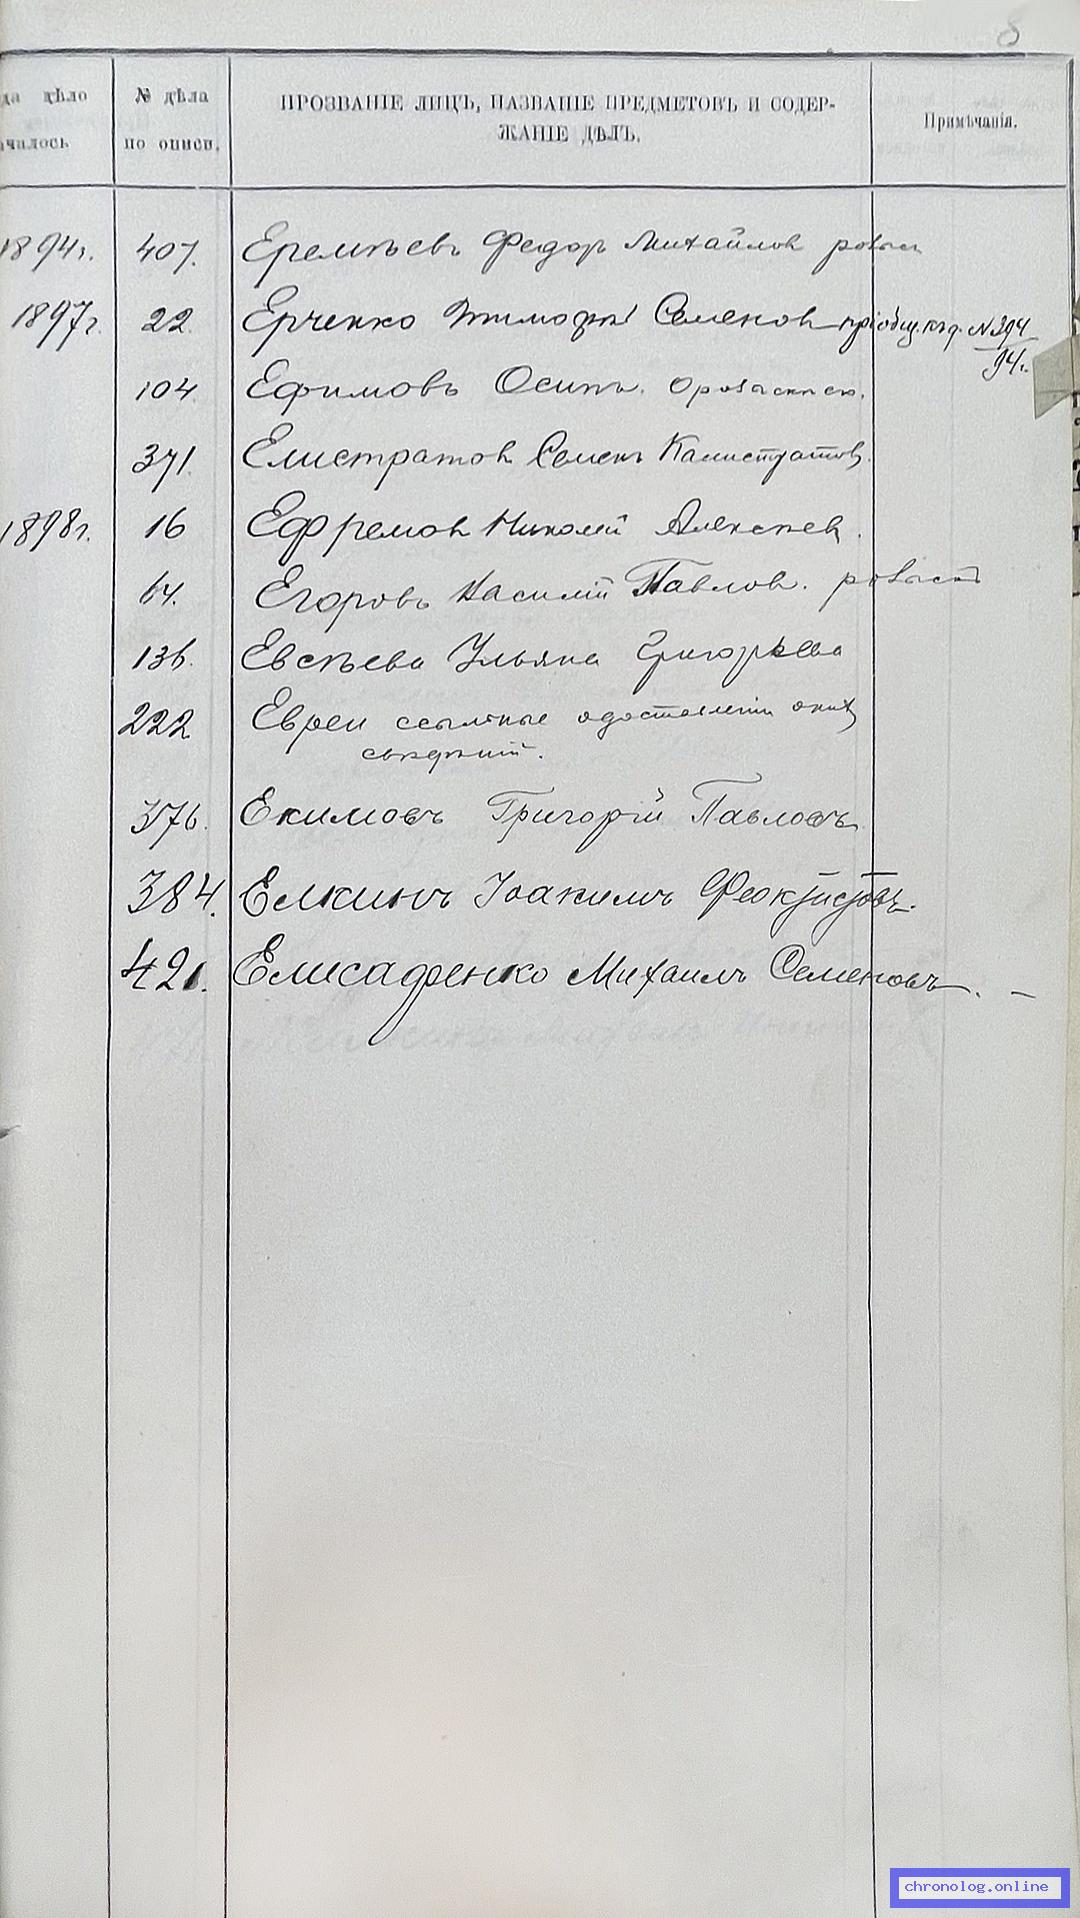 8
да дѣло
чалось
№ дѣла
по описи.
ПРОЗВАНІЕ ЛИЦЪ, НАЗВАНІЕ ПРЕДМЕТОВЪ И СОДЕР-
ЖАНІЕ ДѢЛЪ.
Примѣчанія.
1894г. 407. Еремѣевъ Федоръ Михайлов розыск
1897г. 22 Ерченко Тимофѣй Семенов пріобщ. къ д. № 394
94г.
104 Ефимовъ Осипъ. О розыскѣ его.
371. Елистратов Семенъ Калистратов.
1898г. 16 Ефремов Николай Алексѣев.
64. Егоровъ Василій Павлов. розыскъ
136. Евсѣева Ульяна Григорьева
222 Евреи ссыльные о доставленіи о них
свѣдѣній.
376. Екимовъ Григорій Павловъ
384. Елкинъ Іоакимъ Феоктистовъ.
421. Елисафенко Михаилъ Семеновъ. –
chronolog.online